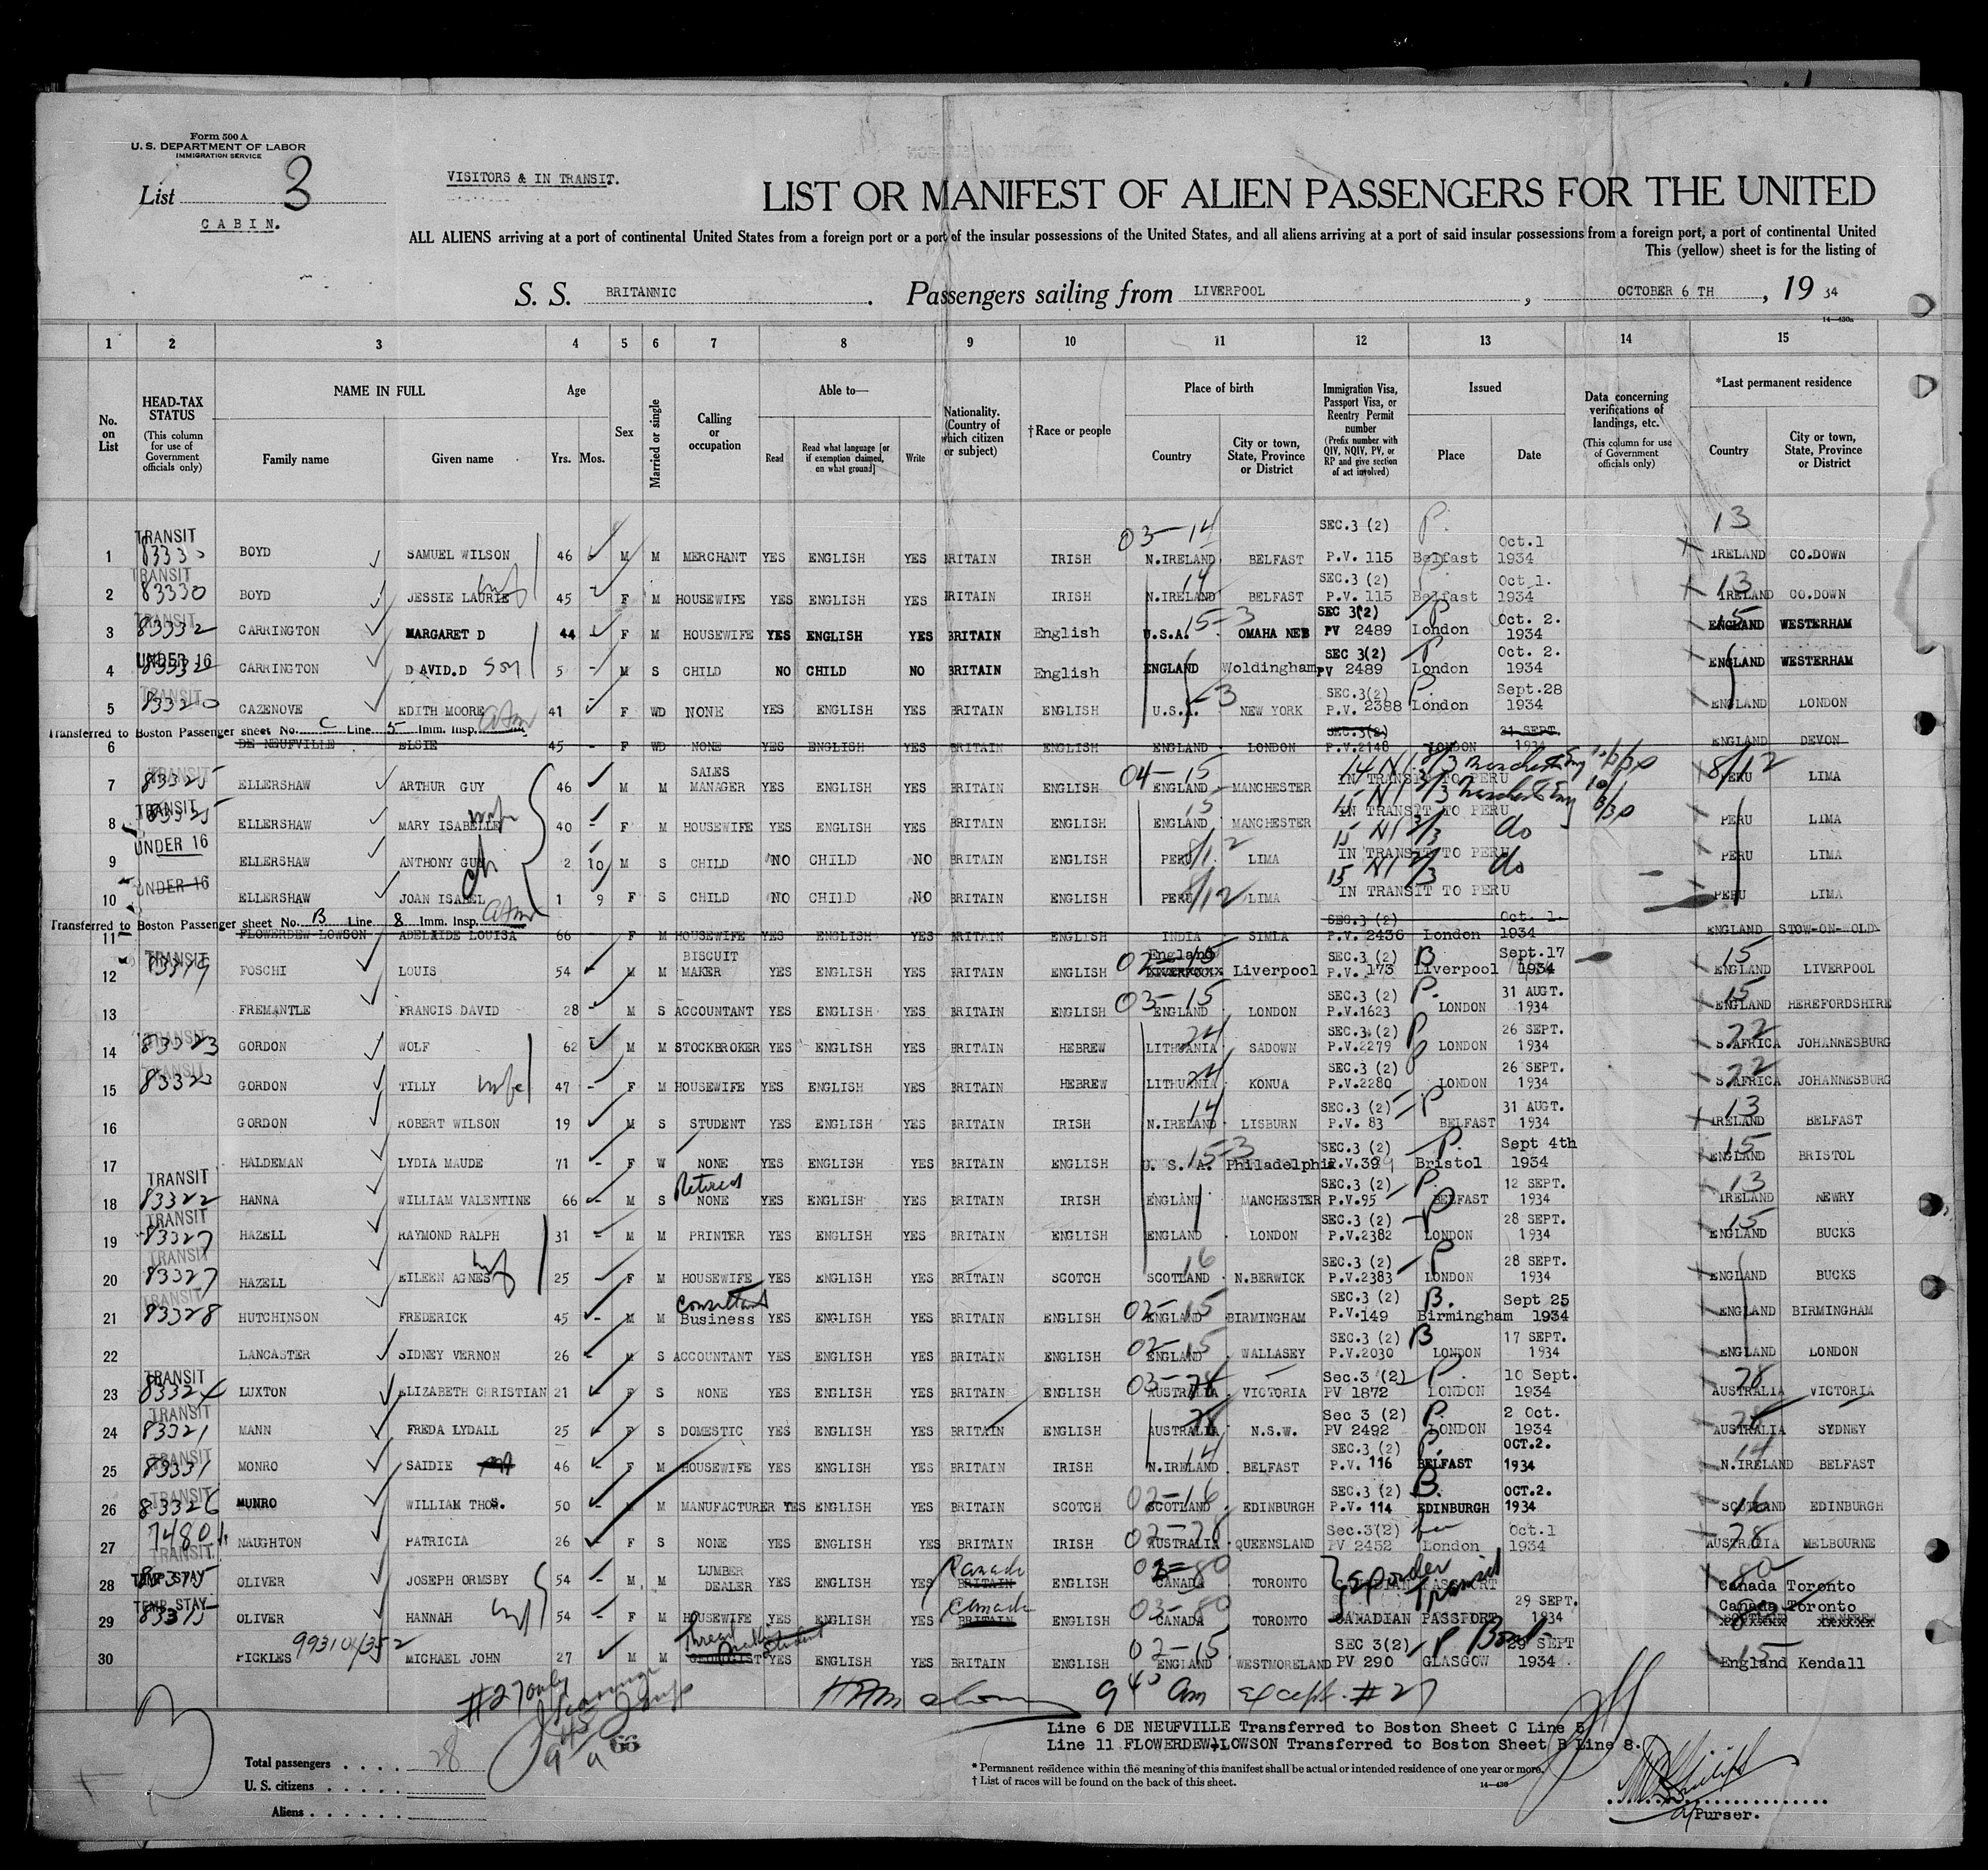 Form 500 A
U. S. DEPARTMENT OF LABOR
IMMIGRATION SERVICE
List 3
CABIN.
VISITORS & IN TRANSIT.
LIST OR MANIFEST OF ALIEN PASSENGERS FOR THE UNITED
ALL ALIENS arriving at a port of continental United States from a foreign port or a port of the insular possessions of the United States, and all aliens arriving at a port of said insular possessions from a foreign port, a port of continental United
This (yellow) sheet is for the listing of
S. S. BRITANNIC. Passengers sailing from LIVERPOOL, OCTOBER 6 TH, 19 34
14—430a
1 2 3 4 5 6 7 8 9 10 11 12 13 14 15
No. on List
HEAD-TAX STATUS (This column for use of Government officials only)
NAME IN FULL Family name Given name
Age Yrs. Mos.
Sex
Married or single
Calling or occupation
Able to— Read Read what language [or if exemption claimed, on what ground] Write
Nationality. (Country of which citizen or subject)
†Race or people
Place of birth Country City or town, State, Province or District
Immigration Visa, Passport Visa, or Reentry Permit number (Prefix number with QIV, NQIV, PV, or RP and give section of act involved)
Issued Place Date
Data concerning verifications of landings, etc. (This column for use of Government officials only)
*Last permanent residence Country City or town, State, Province or District
1 TRANSIT BOYD SAMUEL WILSON 46 M M MERCHANT YES ENGLISH YES BRITAIN IRISH 03-14 N.IRELAND BELFAST SEC.3 (2) P.V. 115 P. Belfast Oct.1 1934 13 IRELAND CO.DOWN
2 TRANSIT 83330 BOYD JESSIE LAURIE wf 45 F M HOUSEWIFE YES ENGLISH YES BRITAIN IRISH 14 N.IRELAND BELFAST SEC.3 (2) P.V. 115 Belfast Oct.1. 1934 13 IRELAND CO.DOWN
3 TRANSIT 83332 CARRINGTON MARGARET D 44 F M HOUSEWIFE YES ENGLISH YES BRITAIN English 15-3 U.S.A. OMAHA NEB SEC 3(2) PV 2489 P London Oct. 2. 1934 15 ENGLAND WESTERHAM
4 UNDER 16 83332 CARRINGTON DAVID.D son 5 M S CHILD NO CHILD NO BRITAIN English ENGLAND Woldingham SEC 3(2) PV 2489 P London Oct. 2. 1934 ENGLAND WESTERHAM
5 TRANSIT 83320 CAZENOVE EDITH MOORE 41 F WD NONE YES ENGLISH YES BRITAIN ENGLISH -3 U.S.A. NEW YORK SEC.3(2) P.V. 2388 P. London Sept.28 1934 ENGLAND LONDON
Transferred to Boston Passenger sheet No. C Line 5 Imm. Insp.
6 DE NEUFVILLE ELSIE 45 F WD NONE YES ENGLISH YES BRITAIN ENGLISH ENGLAND LONDON SEC.3(2) P.V.2148 LONDON 21 SEPT. 1934 ENGLAND DEVON
7 TRANSIT 83325 ELLERSHAW ARTHUR GUY 46 M M SALES MANAGER YES ENGLISH YES BRITAIN ENGLISH 04-15 ENGLAND MANCHESTER IN TRANSIT TO PERU 8/12 PERU LIMA
8 TRANSIT 83325 ELLERSHAW MARY ISABELLE wife 40 F M HOUSEWIFE YES ENGLISH YES BRITAIN ENGLISH 15 ENGLAND MANCHESTER IN TRANSIT TO PERU PERU LIMA
9 UNDER 16 ELLERSHAW ANTHONY GUY ch 2 10 M S CHILD NO CHILD NO BRITAIN ENGLISH 8/12 PERU LIMA IN TRANSIT TO PERU do PERU LIMA
10 UNDER 16 ELLERSHAW JOAN ISABEL 1 9 F S CHILD NO CHILD NO BRITAIN ENGLISH 8/12 PERU LIMA IN TRANSIT TO PERU do PERU LIMA
Transferred to Boston Passenger sheet No. B Line 8 Imm. Insp.
11 FLOWERDEW LOWSON ADELAIDE LOUISA 66 F M HOUSEWIFE YES ENGLISH YES BRITAIN ENGLISH INDIA SIMLA SEC.3 (2) P.V. 2436 London Oct. 1. 1934 ENGLAND STOW-ON-WOLD
12 TRANSIT 83319 FOSCHI LOUIS 54 M M BISCUIT MAKER YES ENGLISH YES BRITAIN ENGLISH 02-15 England Liverpool SEC.3 (2) P.V. 173 B Liverpool Sept.17 1934 15 ENGLAND LIVERPOOL
13 FREMANTLE FRANCIS DAVID 28 M S ACCOUNTANT YES ENGLISH YES BRITAIN ENGLISH 03-15 ENGLAND LONDON SEC.3 (2) P.V.1623 P. LONDON 31 AUGT. 1934 15 ENGLAND HEREFORDSHIRE
14 TRANSIT 83323 GORDON WOLF 62 M M STOCKBROKER YES ENGLISH YES BRITAIN HEBREW 24 LITHUANIA SADOWN SEC.3.(2) P.V.2279 P LONDON 26 SEPT. 1934 22 S.AFRICA JOHANNESBURG
15 TRANSIT 83323 GORDON TILLY wife 47 F M HOUSEWIFE YES ENGLISH YES BRITAIN HEBREW 24 LITHUANIA KONUA SEC.3 (2) P.V.2280 LONDON 26 SEPT. 1934 22 S.AFRICA JOHANNESBURG
16 GORDON ROBERT WILSON 19 M S STUDENT YES ENGLISH YES BRITAIN IRISH 14 N.IRELAND LISBURN SEC.3 (2) P.V. 83 P BELFAST 31 AUGT. 1934 13 IRELAND BELFAST
17 HALDEMAN LYDIA MAUDE 71 F W NONE YES ENGLISH YES BRITAIN ENGLISH 15-3 U. S. A. Philadelphia SEC.3 (2) P.V.39 P. Bristol Sept 4th 1934 15 ENGLAND BRISTOL
18 TRANSIT 83322 HANNA WILLIAM VALENTINE 66 M S Retired NONE YES ENGLISH YES BRITAIN IRISH ENGLAND MANCHESTER SEC.3 (2) P.V.95 P. BELFAST 12 SEPT. 1934 13 IRELAND NEWRY
19 TRANSIT 83327 HAZELL RAYMOND RALPH 31 M M PRINTER YES ENGLISH YES BRITAIN ENGLISH ENGLAND LONDON SEC.3 (2) P.V.2382 P LONDON 28 SEPT. 1934 15 ENGLAND BUCKS
20 TRANSIT 83327 HAZELL EILEEN AGNES wf 25 F M HOUSEWIFE YES ENGLISH YES BRITAIN SCOTCH 16 SCOTLAND N.BERWICK SEC.3 (2) P.V.2383 P LONDON 28 SEPT. 1934 ENGLAND BUCKS
21 TRANSIT 83328 HUTCHINSON FREDERICK 45 M M Consultant Business YES ENGLISH YES BRITAIN ENGLISH 02-15 ENGLAND BIRMINGHAM SEC.3 (2) P.V.149 B. Birmingham Sept 25 1934 ENGLAND BIRMINGHAM
22 LANCASTER SIDNEY VERNON 26 M S ACCOUNTANT YES ENGLISH YES BRITAIN ENGLISH 02-15 ENGLAND WALLASEY SEC.3 (2) P.V.2030 B LONDON 17 SEPT. 1934 ENGLAND LONDON
23 TRANSIT 83324 LUXTON ELIZABETH CHRISTIAN 21 F S NONE YES ENGLISH YES BRITAIN ENGLISH 03-78 AUSTRALIA VICTORIA Sec.3 (2) PV 1872 P. LONDON 10 Sept. 1934 78 AUSTRALIA VICTORIA
24 TRANSIT 83321 MANN FREDA LYDALL 25 F S DOMESTIC YES ENGLISH YES BRITAIN ENGLISH 78 AUSTRALIA N.S.W. Sec 3 (2) PV 2492 P. LONDON 2 Oct. 1934 78 AUSTRALIA SYDNEY
25 TRANSIT 83331 MONRO SAIDIE 46 F M HOUSEWIFE YES ENGLISH YES BRITAIN IRISH 14 N.IRELAND BELFAST SEC.3 (2) P.V. 116 P. BELFAST OCT.2. 1934 14 N.IRELAND BELFAST
26 TRANSIT 83326 MUNRO WILLIAM THOS. 50 M M MANUFACTURER YES ENGLISH YES BRITAIN SCOTCH 02-16 SCOTLAND EDINBURGH SEC.3 (2) P.V. 114 B. EDINBURGH OCT.2. 1934 16 SCOTLAND EDINBURGH
27 TRANSIT NAUGHTON PATRICIA 26 F S NONE YES ENGLISH YES BRITAIN IRISH 02-78 AUSTRALIA QUEENSLAND Sec.3(2) PV 2452 London Oct.1 1934 78 AUSTRALIA MELBOURNE
28 TEMP STAY 83315 OLIVER JOSEPH ORMSBY 54 M M LUMBER DEALER YES ENGLISH YES Canada BRITAIN ENGLISH 80 CANADA TORONTO PASSPORT Transit 80 Canada Toronto
29 TEMP. STAY 83315 OLIVER HANNAH wf 54 F M HOUSEWIFE YES ENGLISH YES Canada BRITAIN ENGLISH 03-80 CANADA TORONTO CANADIAN PASSPORT 29 SEPT. 1934 Canada Toronto
30 PICKLES MICHAEL JOHN 27 M M YES ENGLISH YES BRITAIN ENGLISH 02-15 ENGLAND WESTMORELAND SEC 3(2) PV 290 P GLASGOW 29 SEPT 1934 15 England Kendall
#27 only
9 45 Am except #27
Line 6 DE NEUFVILLE Transferred to Boston Sheet C Line 5
Line 11 FLOWERDEW LOWSON Transferred to Boston Sheet B Line 8.
66
Total passengers . . . . 28
U. S. citizens . . . . .
Aliens . . . . . .
* Permanent residence within the meaning of this manifest shall be actual or intended residence of one year or more.
† List of races will be found on the back of this sheet.
14—430
Purser.